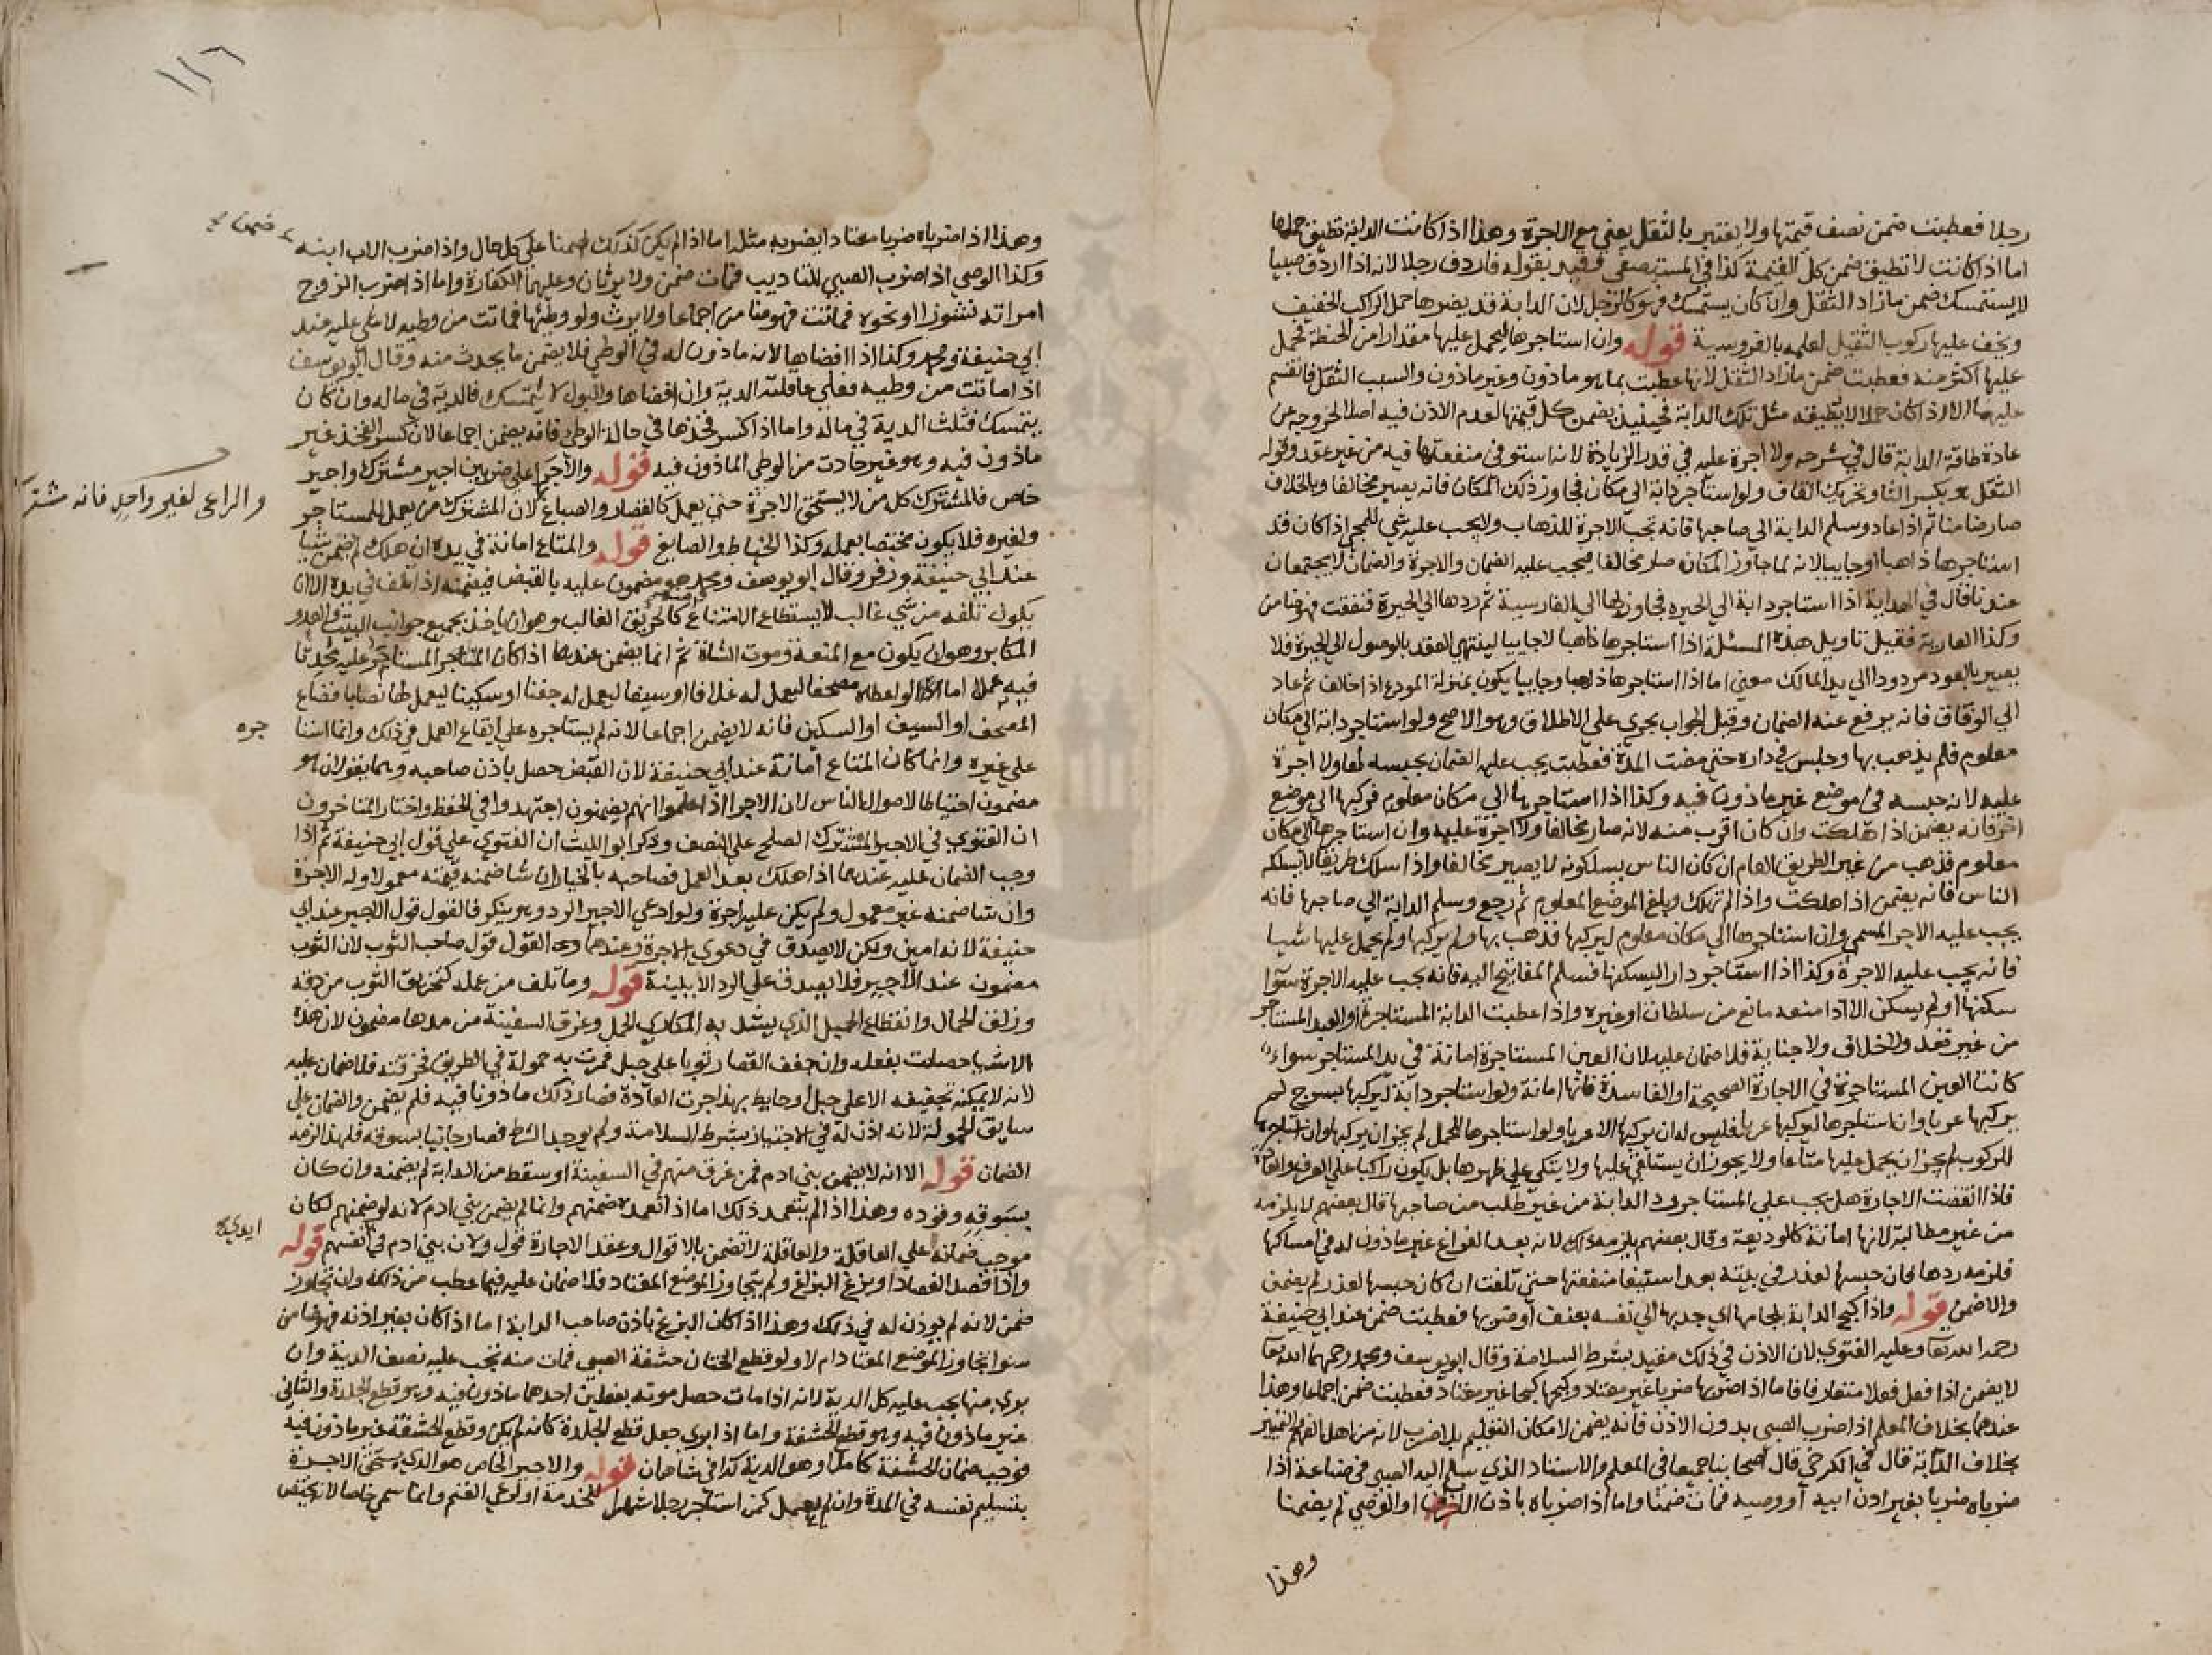 رجلا فعطبت ضمن نصف قيمتها ولا يعتبر بالثقل يعني مع الاجرة وهذا اذا كانت الدابة تطيق حملها
اما اذا كانت لا تطيق ضمن كل القيمة كذا في المستصفي وقيد بقوله فاردف رجلا لانه اذا اردف صبيا
لا يستمسك ضمن ما زاد الثقل وان كان يستمسك فهو كالرجل لان الدابة قد يضرها حمل الراكب الخفيف
ويخف عليها ركوب الثقيل لعلمه بالفروسية قوله وان استاجرها ليحمل عليها مقدارا من الحنطة فحمل
عليها اكثر منه فعطبت ضمن ما زاد الثقل لانها عطبت بما هو ماذون وغير ماذون والسبب الثقل فانقسم
عليهما الا اذا كان حملا لا تطيقه مثل تلك الدابة فحينئذ يضمن كل قيمتها لعدم الاذن فيه اصلا لخروجه عن
عادة طاقة الدابة قال في شرحه ولا اجرة عليه في قدر الزيادة لانه استوفى منفعتها فيه من غير عقد وقوله
الثقل هو بكسر الثا وتحريك القاف ولو استاجر دابة الي مكان فجاوز ذلك المكان فانه يصير مخالفا وبالخلاف
صار ضامنا ثم اذا عاد وسلم الدابة الى صاحبها فانه تجب الاجرة للذهاب ولا يجب عليه شي للمجي اذا كان قد
استاجرها ذاهبا وجاييا لانه لما جاوز المكان صار مخالفا فيجب عليه الضمان والاجرة والضمان لا يجتمعان
عندنا قال في الهداية اذا استاجر دابة الي الحيرة فجاوز بها الي القادسية ثم ردها الي الحيرة فنفقت فهو ضامن
وكذا العارية فقيل تاويل هذه المسئلة اذا استاجرها ذاهبا لا جاييا لينتهي العقد بالوصول الي الحيرة فلا
يصير بالعود مردودا الي يد المالك معني اما اذا استاجرها ذاهبا وجاييا يكون بمنزلة المودع اذا خالف ثم عاد
الي الوفاق فانه يرفع عنه الضمان وقيل الجواب يجري علي الاطلاق وهو الاصح ولو استاجر دابة الي مكان
معلوم فلم يذهب بها وجلس في داره حتي مضت المدة فعطبت يجب عليه الضمان بحبسه لها ولا اجرة
عليه لانه حبسه في موضع غير ماذون فيه وكذا اذا استاجرها الي مكان معلوم فركبها الي موضع
اخر فانه يضمن اذا هلكت وان كان اقرب منه لانه صار مخالفا ولا اجرة عليه وان استاجرها الي مكان
معلوم فذهب من غير الطريق العام ان كان الناس يسلكونه لا يصير مخالفا واذا سلك طريقا لا يسلكه
الناس فانه يضمن اذا هلكت واذا لم تهلك وبلغ الموضع المعلوم ثم رجع وسلم الدابة الي صاحبها فانه
يجب عليه الاجر المسمي وان استاجرها الي مكان معلوم ليركبها فذهب بها ولم يركبها ولم يحمل عليها شيا
فانه يجب عليه الاجرة وكذا اذا استاجر دار اليسكنها فسلم المفاتيح اليه فانه يجب عليه الاجرة سوآ
سكنها او لم يسكن الا اذا منعه مانع من سلطان او غيره واذا عطبت الدابة المستاجرة او العبد المستاجر
من غير تعد ولا خلاف ولا جناية فلا ضمان عليه لان العين المستاجرة امانة في يد المستاجر سواء
كانت العين المستاجرة في الاجارة الصحيحة او الفاسدة فانها امانة ولو استاجر دابة ليركبها بسرج لم
يركبها عريا وان استاجرها ليركبها عريا فليس له ان يركبها الا عريا ولو استاجرها للحمل لم يجز ان يركبها وان استاجرها
للركوب لم يجز ان يحمل عليها متاعا ولا يجوز ان يستلقي عليها ولا يتكي علي ظهرها بل يكون راكبا علي العرف والعادة
فاذا انقضت الاجارة هل يجب علي المستاجر رد الدابة من غير طلب من صاحبها قال بعضهم لا يلزمه
من غير مطالبة لانها امانة كالوديعة وقال بعضهم يلزمه ذلك لانه بعد الفراغ غير ماذون له في امساكها
فلزمه ردها فان حبسها لعذر في بيته بعد استيفا منفعتها حتي تلفت ان كان حبسها لعذر لم يضمن
والا ضمن قوله واذا كبح الدابة بلجامها اي جذبها الي نفسه بعنف او ضربها فعطبت ضمن عند ابي حنيفة
رحمه الله تعا وعليه الفتوي لان الاذن في ذلك مقيد بشرط السلامة وقال ابو يوسف ومحمد رحمهما الله تعا
لا يضمن اذا فعل فعلا متعارفا فاما اذا ضربها ضربا غير معتاد وكبحها كبحا غير معتاد فعطبت ضمن اجماعا وهذا
عندهما بخلاف المعلم اذا ضرب الصبي بدون الاذن فانه يضمن لامكان التعليم بلا ضرب لانه من اهل الفهم والتمييز
بخلاف الدابة قال في الكرخي قال اصحابنا جميعا في المعلم والاستاد الذي سلم اليه الصبي في صناعة اذا
ضرباه ضربا بغير اذن ابيه او وصيه فمات ضمنا واما اذا ضرباه باذن الاب او الوصي لم يضمنا
وهذا
١١٦
وهذا اذا ضرباه ضربا معتادا يضرب مثله اما اذا لم يكن كذلك ضمنا علي كل حال واذا ضرب الاب ابنه
ضمنا
وكذا الوصي اذا ضرب الصبي للتاديب فمات ضمن ولا يرثان وعليهما الكفارة واما اذا ضرب الزوج
امراته لنشوزا او نحوه فماتت فهو ضامن اجماعا ولا يرث ولو وطئها فماتت من وطيه لا شي عليه عند
ابي حنيفة ومحمد وكذا اذا افضاها لانه ماذون له في الوطي فلا يضمن ما يحدث منه وقال ابو يوسف
اذا ماتت من وطيه فعلي عاقلته الدية وان افضاها والبول لا يستمسك فالدية في ماله وان كان
يستمسك فثلث الدية في ماله واما اذا كسر فخذها في حالة الوطي فانه يضمن اجماعا لان كسر الفخذ غير
ماذون فيه وهو غير حادث من الوطي الماذون فيه قوله والاجرا علي ضربين اجير مشترك واجير
خاص فالمشترك كل من لا يستحق الاجرة حتي يعمل كالقصار والصباغ لان المشترك من يعمل للمستاجر
والراعى لغير واحد فانه مشترك
ولغيره فلا يكون مختصا بعمله وكذا الخياط والصايغ قوله والمتاع امانة في يده ان هلك لم يضمن شيا
عند ابي حنيفة وزفر وقال ابو يوسف ومحمد هو مضمون عليه بالقبض فيضمنه اذا تلف في يده الا ان
يكون تلفه من شي غالب لا يستطاع الامتناع كالحريق الغالب وهو ان ياخذ بجميع جوانب البيت والعدو
المكابر وهو ان يكون مع المنعة وموت الشاة ثم انما يضمن عندهما اذا كان المتاع المستاجر عليه محدثا
فيه عملا اما لو اعطاه مصحفا ليعمل له غلافا او سيفا ليعمل له جفنا او سكينا ليعمل لها نصابا فضاع
المصحف او السيف او السكين فانه لا يضمن اجماعا لانه لم يستاجره علي ايقاع العمل في ذلك وانما استا
جره
علي غيره وانما كان المتاع امانة عند ابي حنيفة لان القبض حصل باذن صاحبه وهما يقولان هو
مضمون احتياطا لاموال الناس لان الاجرا اذا علموا انهم يضمنون اجتهدوا في الحفظ واختار المتاخرون
ان الفتوي في الاجير المشترك الصلح علي النصف وذكر ابو الليث ان الفتوي علي قول ابي حنيفة ثم اذا
وجب الضمان عليه عندهما اذا هلك بعد العمل فصاحبه بالخيار ان شا ضمنه قيمته معمولا وله الاجرة
وان شا ضمنه غير معمول ولم يكن عليه اجرة ولو ادعي الاجير الرد وهو ينكر فالقول قول الاجير عند ابي
حنيفة لانه امين ولكن لا يصدق في دعوي الاجرة وعندهما القول قول صاحب الثوب لان الثوب
مضمون عند الاجير فلا يصدق علي الرد الا ببينة قوله وما تلف من عمله كتخريق الثوب من دقه
وزلق الحمال وانقطاع الحبل الذي يشد به المكاري الحمل وغرق السفينة من مدها مضمون لان هذه
الاشيا حصلت بفعله وان جفف القصار ثوبا علي حبل فمرت به حمولة في الطريق فخرقته فلا ضمان عليه
لانه لا يمكنه تجفيفه الا علي حبل او حايط بهذا جرت العادة فصار ذلك ماذونا فيه فلم يضمن والضمان علي
سايق الحمولة لانه اذن له في الاجتياز بشرط السلامة ولم يوجد الشرط فصار جانيا بسوقه فلهذا لزمه
الضمان قوله الا انه لا يضمن بني ادم فمن غرق منهم في السفينة او سقط من الدابة لم يضمنه وان كان
بسوقه وقوده وهذا اذا لم يتعمد ذلك اما اذا تعمده ضمنهم وانما لم يضمن بني ادم لانه لو ضمنهم لكان
موجب ضمانه علي العاقلة والعاقلة لا تضمن بالاقوال وعقد الاجارة قول ولان بني ادم في انفسهم قوله
ايدي
واذا فصد الفصاد او بزغ البزاغ ولم يتجاوز الموضع المعتاد فلا ضمان عليه فيما عطب من ذلك وان تجاوز
ضمن لانه لم يوذن له في ذلك وهذا اذا كان البزغ باذن صاحب الدابة اما اذا كان بغير اذنه فهو ضامن
سوا تجاوز الموضع المعتاد ام لا ولو قطع الختان حشفة الصبي فمات منه تجب عليه نصف الدية وان
بري منها يجب عليه كل الدية لانه اذا مات حصل موته بفعلين احدهما ماذون فيه وهو قطع الجلدة والثاني
غير ماذون فيه وهو قطع الحشفة واما اذا ابري جعل قطع الجلدة كانه لم يكن وقطع الحشفة غير ماذون فيه
فوجب ضمان الحشفة كاملا وهو الدية كذا في شاهان قوله والاجير الخاص هو الذي يستحق الاجرة
بتسليم نفسه في المدة وان لم يعمل كمن استاجر رجلا شهرا للخدمة او لرعي الغنم وانما سمي خاصا لانه يختص